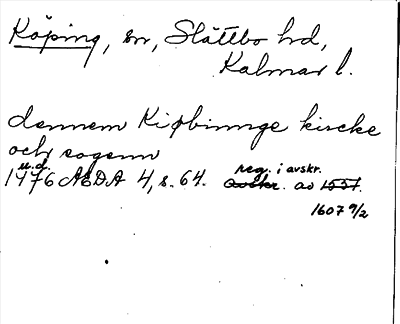 Köping, sn, Slättbo hrd,
Kalmar l.
dennem Kiøbinnge kircke
och sogenn
u.d. reg. i avskr.
1476 AEDA 4, s. 64. avskr. av 1557.
1607 9/2